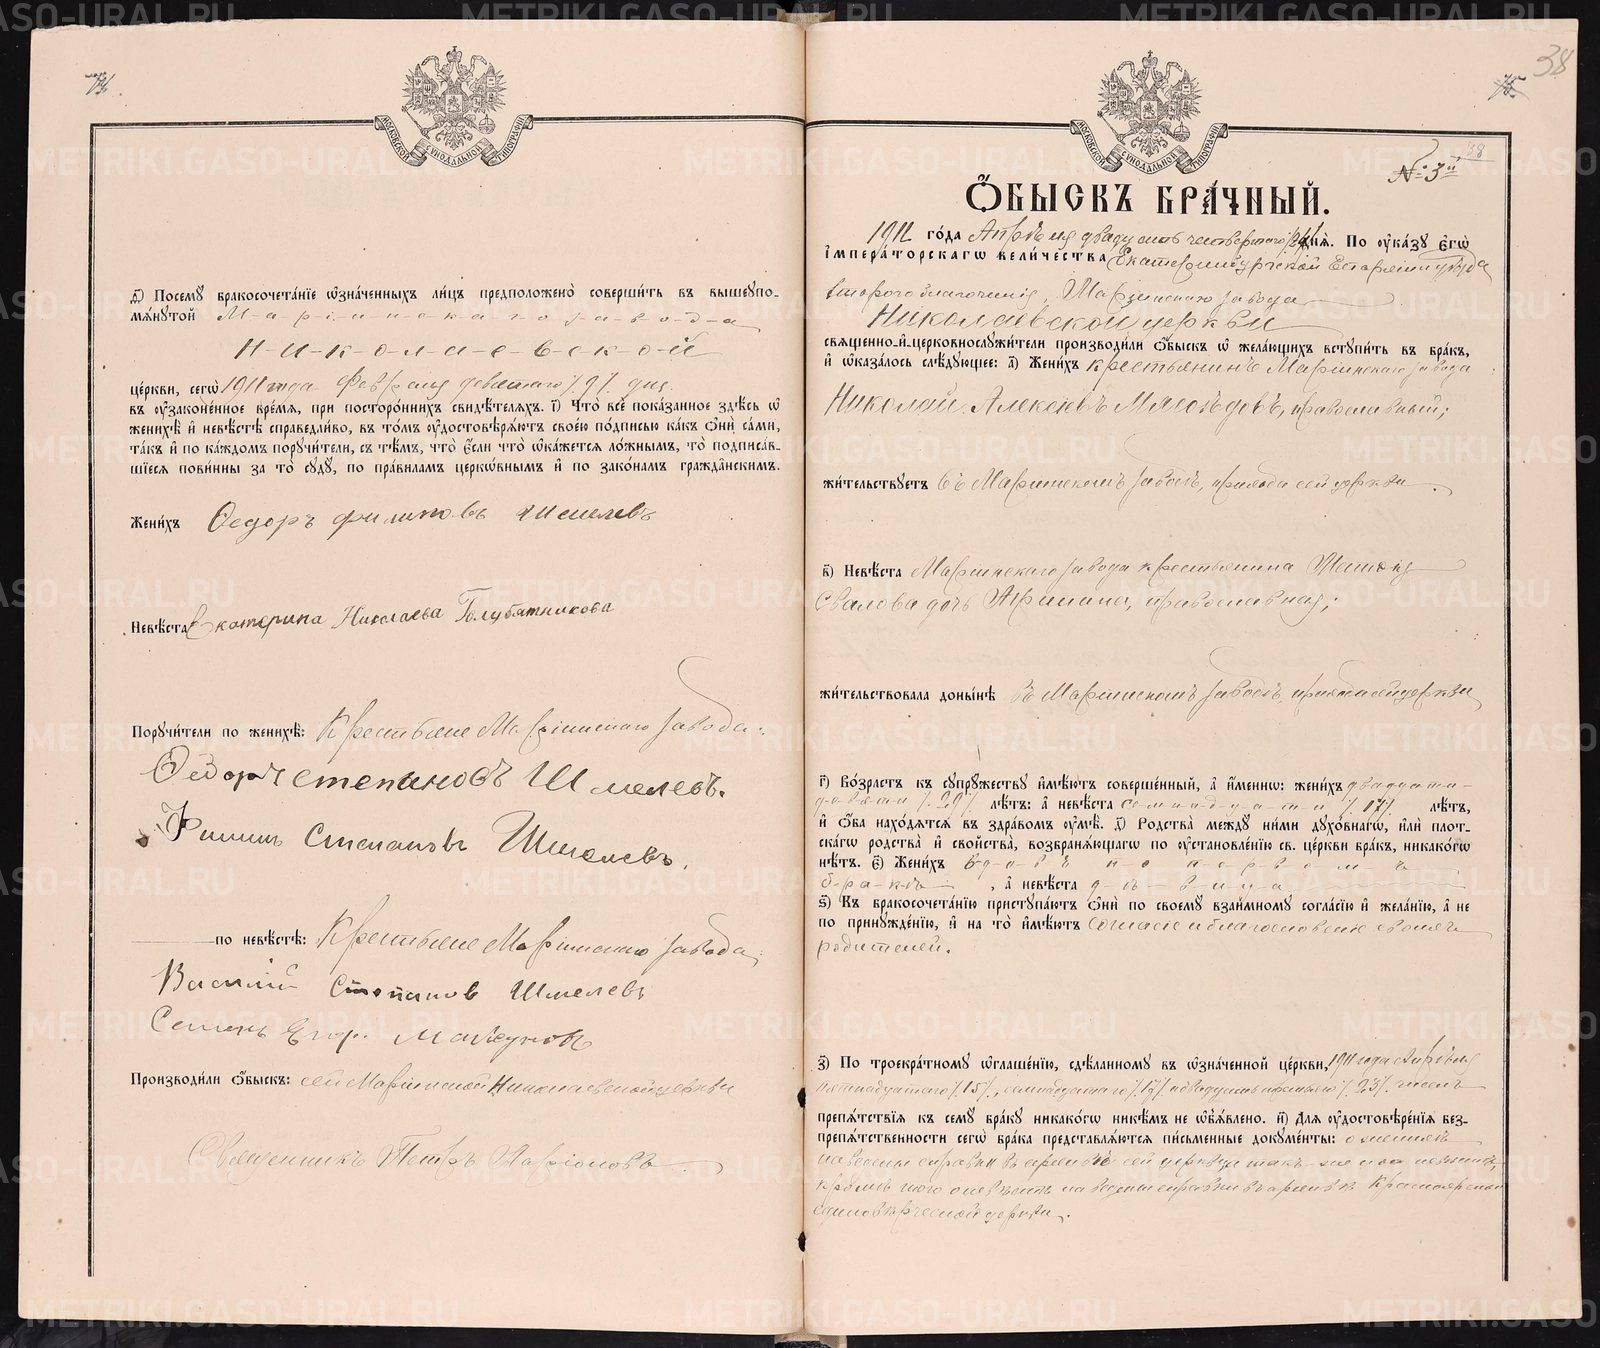 74.
МОСКОВСКОЙ СѴНОДАЛЬНОЙ ТИПОГРАФІИ
ѳ) Посемꙋ̀ бракосочета́нїе ѡ҆зна́ченныхъ ли́цъ предположено̀ соверши́ть въ вышеꙋпо-
мѧ́нꙋтой М-а-р-і-и-н-с-к-а-г-о з-а-в-о-д-а
Н-и-к-о-л-а-е-в-с-к-о-й
це́ркви, сегѡ̀ 1911 года Февраля девятаго /9/ дня
въ ᲂу҆зако́ненное вре́мѧ, при посторо́ннихъ свидѣ́телѧхъ. і҃) Что̀ всѐ пока́занное здѣ́сь ѡ҆
женихѣ̀ и҆ невѣ́стѣ справедли́во, въ то́мъ ᲂу҆достовѣрѧ́ютъ свое́ю по́дписью ка́къ ѻ҆нѝ са́ми,
та́къ и҆ по ка́ждомъ порꙋчи́тели, съ тѣ́мъ, что̀ є҆́сли что̀ ѡ҆ка́жетсѧ ло́жнымъ, то̀ подписа́в-
шїесѧ пови́нны за то̀ сꙋдꙋ̀, по пра́виламъ церкѡ́внымъ и҆ по зако́намъ гражда́нскимъ.
Жени́хъ Ѳедоръ Филиповъ Шмелевъ
Невѣ́ста Екатерина Николаева Голубятникова
Порꙋчи́тели по женихѣ̀: Крестьяне Маріинскаго завода:
Ѳедоръ Степановъ Шмелевъ.
Филипъ Степановъ Шмелевъ.
по невѣ́стѣ: Крестьяне Маріинскаго завода:
Василий Степанов Шмелевъ
Семенъ Егор.
Производи́ли ѻ҆́быскъ: сей Маріинской Николаевской церкви
Священникъ Петръ Ларіоновъ
38
75.
38
№ 3й
МОСКОВСКОЙ СѴНОДАЛЬНОЙ ТИПОГРАФІИ
Ѻ҆́БЫСКЪ БРА́ЧНЫЙ.
1911 го́да Апрѣля двадцать четвертаго /24/ днѧ̀. По ᲂу҆ка́зꙋ є҆гѡ̀
і҆мпера́торскагѡ вели́чества Екатеринбургской Епархіи уѣзда
второго благочинія, Маріинскаго завода
Николаевской церкви
свѧщенно-и҆-церковнослꙋжи́тели производи́ли ѻ҆́быскъ ѡ҆ жела́ющихъ встꙋпи́ть въ бра́къ,
и҆ ѡ҆каза́лось слѣ́дꙋющее: а҃) Жени́хъ крестьянинъ Маріинскаго завода
Николай Алексѣевъ Мясоѣдовъ, православный;
жи́тельствꙋетъ въ Маріинскомъ заводѣ, прихода сей церкви.
в҃) Невѣ́ста Маріинскаго завода крестьянина
Свалова дочь православная;
жи́тельствовала доны́нѣ въ Маріинскомъ заводѣ, прихода сей церкви
г҃) Во́зрастъ къ сꙋпрꙋ́жествꙋ и҆мѣ́ютъ соверше́нный, а҆ и҆́меннѡ: жени́хъ двадцати
девяти /29/ лѣ́тъ: а҆ невѣ́ста семнадцати /17/ лѣ́тъ,
и҆ ѻ҆́ба нахо́дѧтсѧ въ здра́вомъ ᲂу҆мѣ̀. д҃) Родства̀ междꙋ̀ ни́ми дꙋхо́внагѡ, и҆лѝ пло́т-
скагѡ родства̀ и҆ сво́йства, возбранѧ́ющагѡ по ᲂу҆становле́нїю св. це́ркви бра́къ, никако́гѡ
нѣ́тъ. є҃) Жени́хъ вдовъ по первомъ
бракѣ, а҆ невѣ́ста дѣвица
ѕ҃) Въ бракосочета́нїю пристꙋпа́ютъ ѻ҆нѝ по своемꙋ̀ взаи́мномꙋ согла́сїю и҆ жела́нїю, а҆ не
по принꙋжде́нїю, и҆ на то̀ и҆мѣ́ютъ согласіе и благословеніе своихъ
родителей.
з҃) По троекра́тномꙋ ѡ҆глаше́нїю, сдѣ́ланномꙋ въ ѡ҆зна́ченной це́ркви, 1911 года Апрѣля
пятнадцатаго /15/, семнадцатаго /17/ и двадцать третьяго /23/ чиселъ
препѧ́тствїѧ къ семꙋ̀ бра́кꙋ никако́гѡ никѣ́мъ не ѡ҆б̾ѧ́влено. и҃) Длѧ̀ ᲂу҆достовѣ́ренїѧ без-
препѧ́тственности сегѡ̀ бра́ка представлѧ́ютсѧ пи́сьменные докꙋме́нты: о женихѣ
наведены справки въ архивѣ сей церкви такъ же и на невѣсту,
кромѣ того о невѣстѣ наведены справки въ архивѣ Красноярской
единовѣрческой церкви.
METRIKI.GASO-URAL.RU